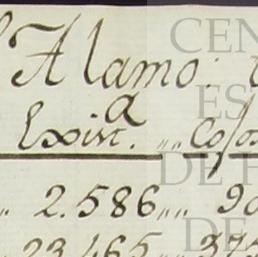 Alamo:
Exist.ᵃ ,,,, Cofos
2.586,,,, 90
23.465 375
CEN
ES
DE
DE